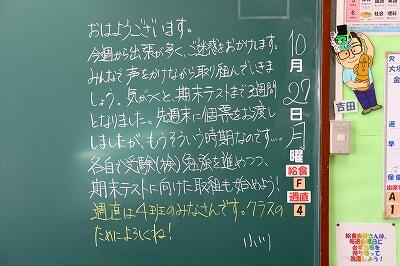 おはようございます。
今週から出張が多く、ご迷惑をおかけします。
みんなで声をかけながら取り組んでいきま
しょう。気がつくと、期末テストまで3週間
となりました。先週末に個票をお渡し
しましたが、もうそういう時期なのです…。
各自で受験(検)勉強を進めつつ、
期末テストに向けた取組も始めよう!
週直は4班のみなさんです。クラスの
ためによろしくね!
小川
10
月
27
日
月
曜
給食
F
週直
4
吉田